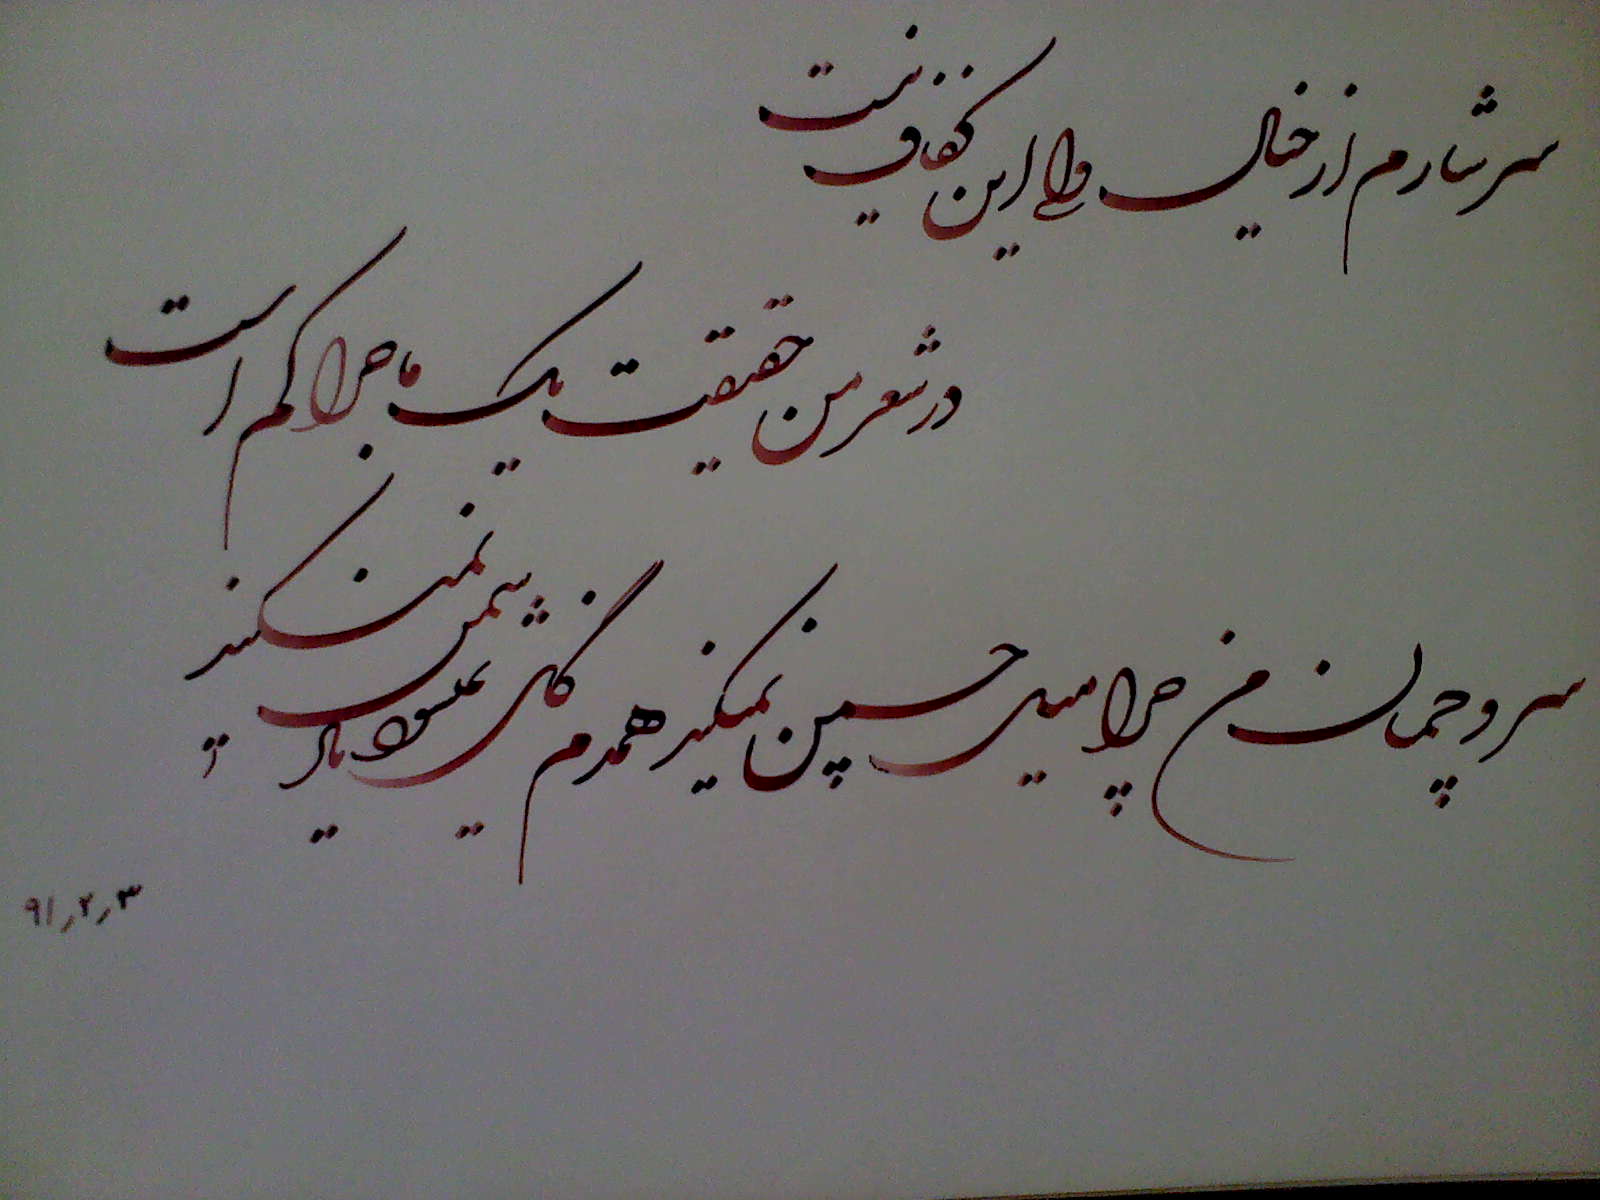 سرشارم از خیال ولی این کفاف نیست
در شعر من حقیقت یک ماجرا کم است
سرو چمان من چرا میل چمن نمیکند همدم گل نمیشود یاد سمن نمیکند
۹۱٫۲٫۳